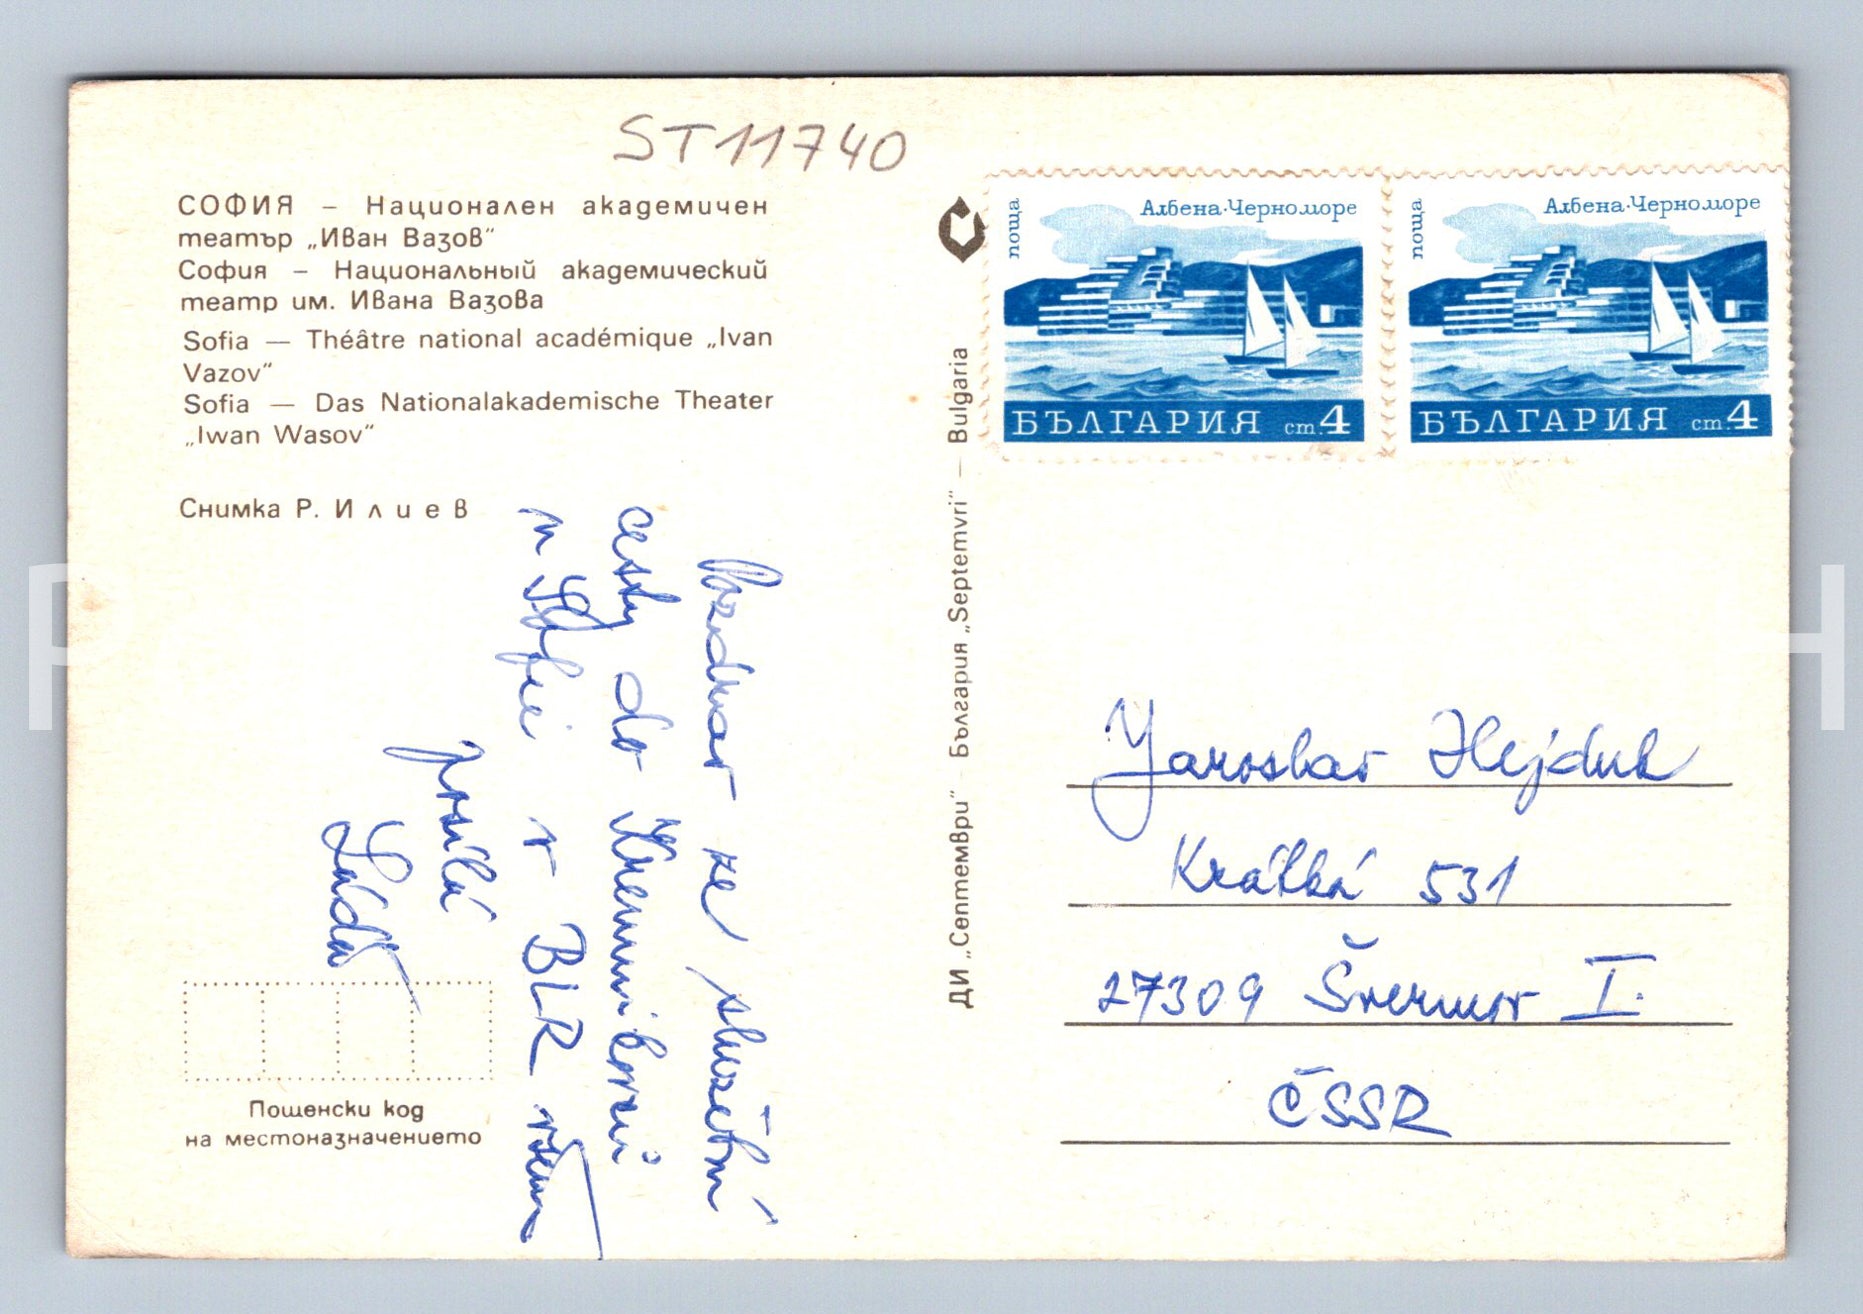 ST11740
СОФИЯ – Национален академичен
театър „Иван Вазов“
София – Национальный академический
театр им. Ивана Вазова
Sofia — Théâtre national académique „Ivan
Vazov“
Sofia — Das Nationalakademische Theater
„Iwan Wasov“
Снимка Р. Илиев
Pozdrav ze služební
cesty do
v Sofii v BLR všem
posílá
Láďa
Пощенски код
на местоназначението
ДИ „Септември“ България „Septemvri“ — Bulgaria
поща
Албена·Черноморе
БЪЛГАРИЯ ст.4
поща
Албена·Черноморе
БЪЛГАРИЯ ст.4
Jaroslav Hejduk
Krátká 531
27309 Švermov I.
ČSSR